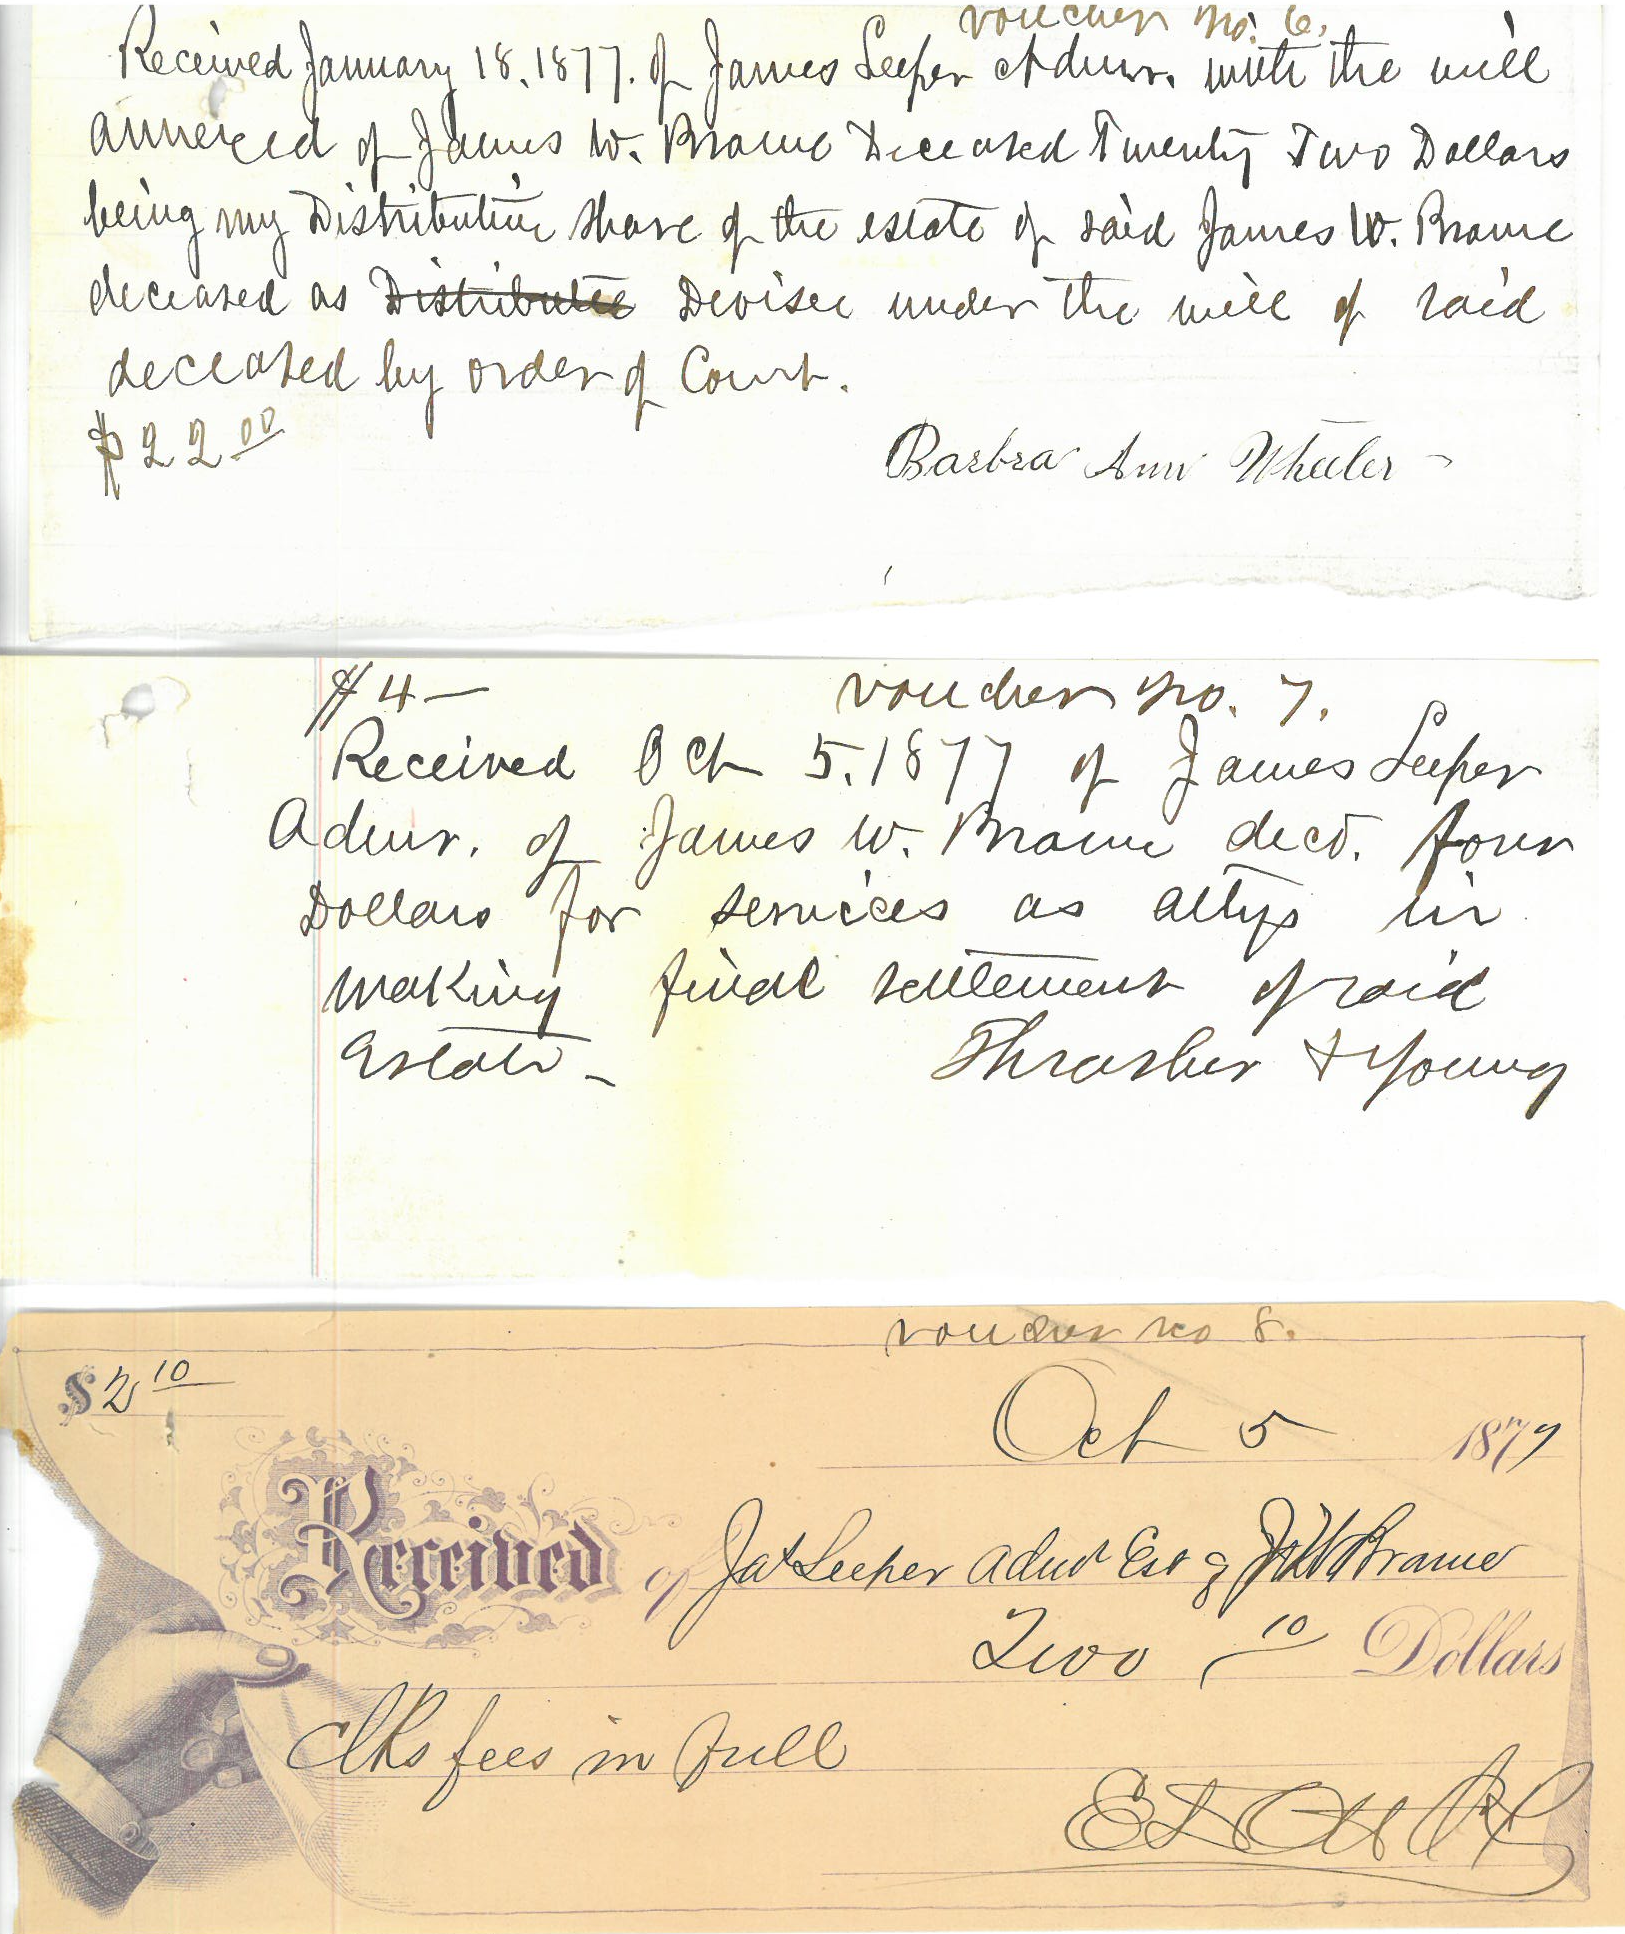 voucher no. 6.
Received January 18, 1877. of James Leeper Admr. with the will
annexed of James W. Brame Deceased Twenty Two Dollars
being my Distributive share of the estate of said James W. Brame
deceased as Distributee Devisee under the will of said
deceased by order of Court.
$22.00
Barbra Ann Wheeler
$4— voucher no. 7.
Received Oct 5. 1877 of James Leeper
Admr. of James W. Brame decd. four
Dollars for services as attys in
making final settlement of said
Estate— Thrasher & Young
voucher no 8.
$2 10
Oct 5 1877
Received of Jas Leeper Admr Est of Brame
Two 10 Dollars
Clks fees in full